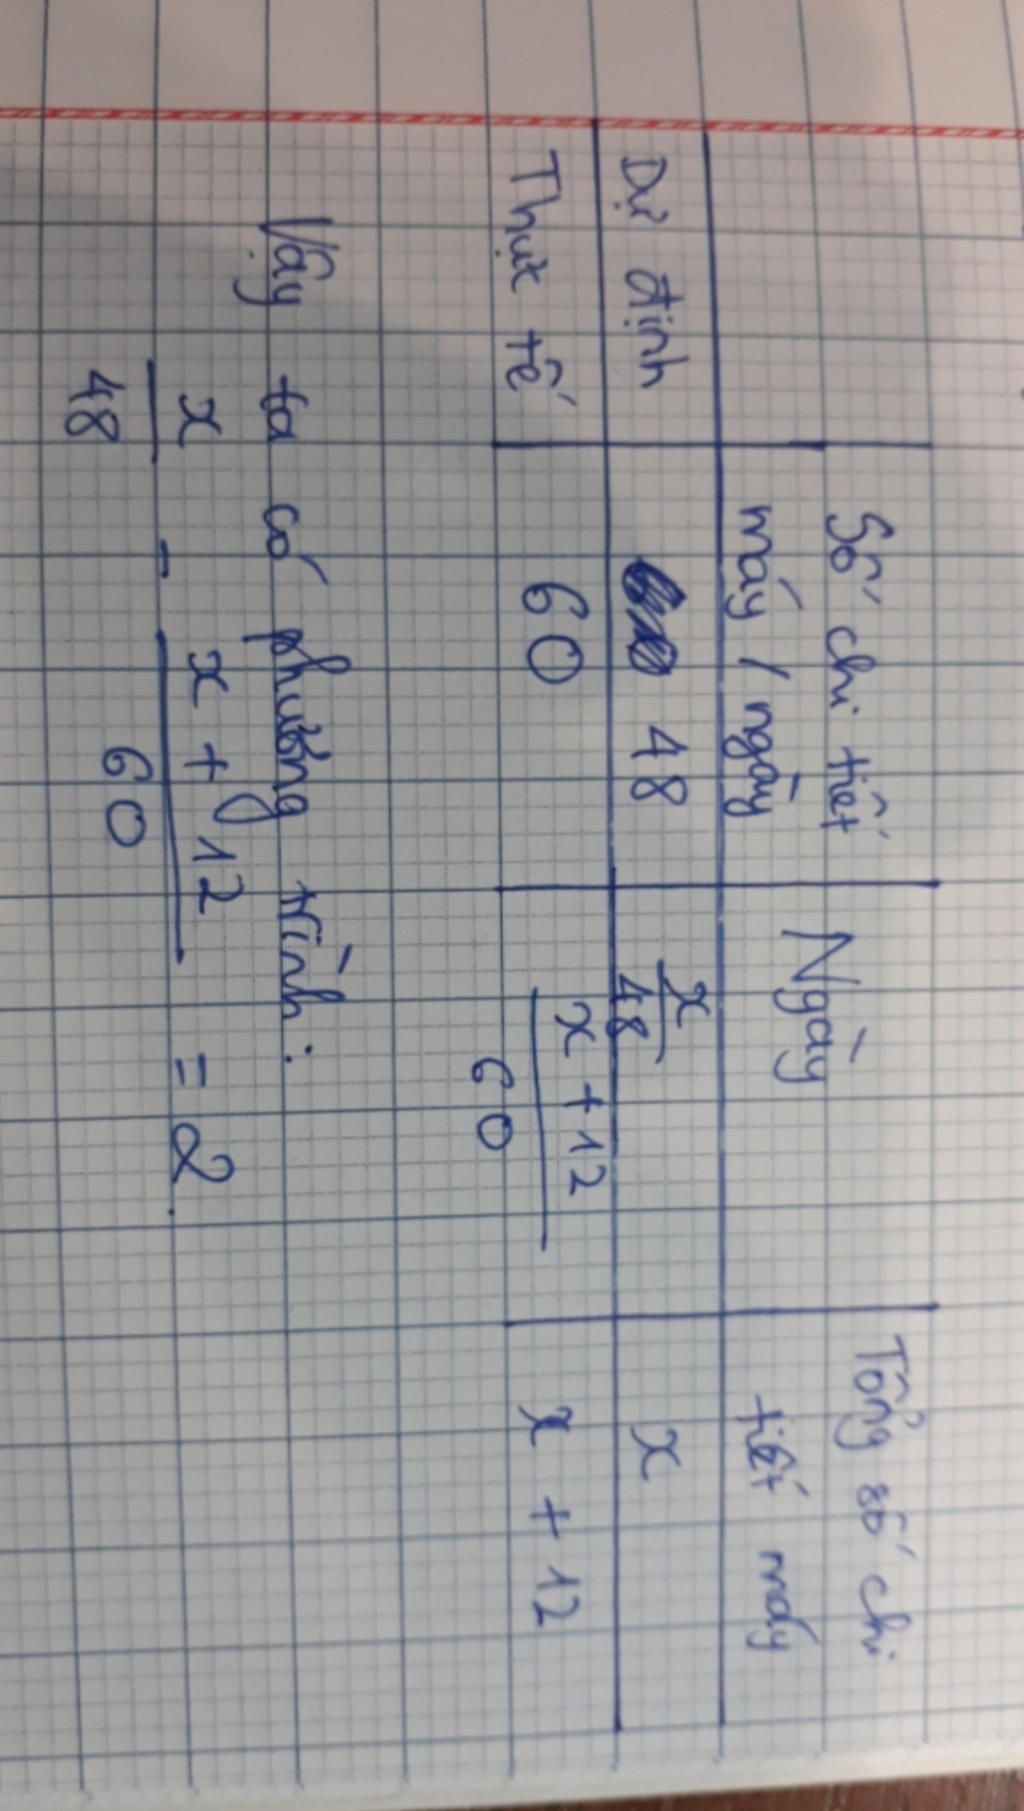 Số chi tiết máy / ngày | Ngày | Tổng số chi tiết máy
Dự định | 48 | x/48 | x
Thực tế | 60 | x + 12/60 | x + 12
Vậy ta có phương trình:
x/48 - x + 12/60 = 2.